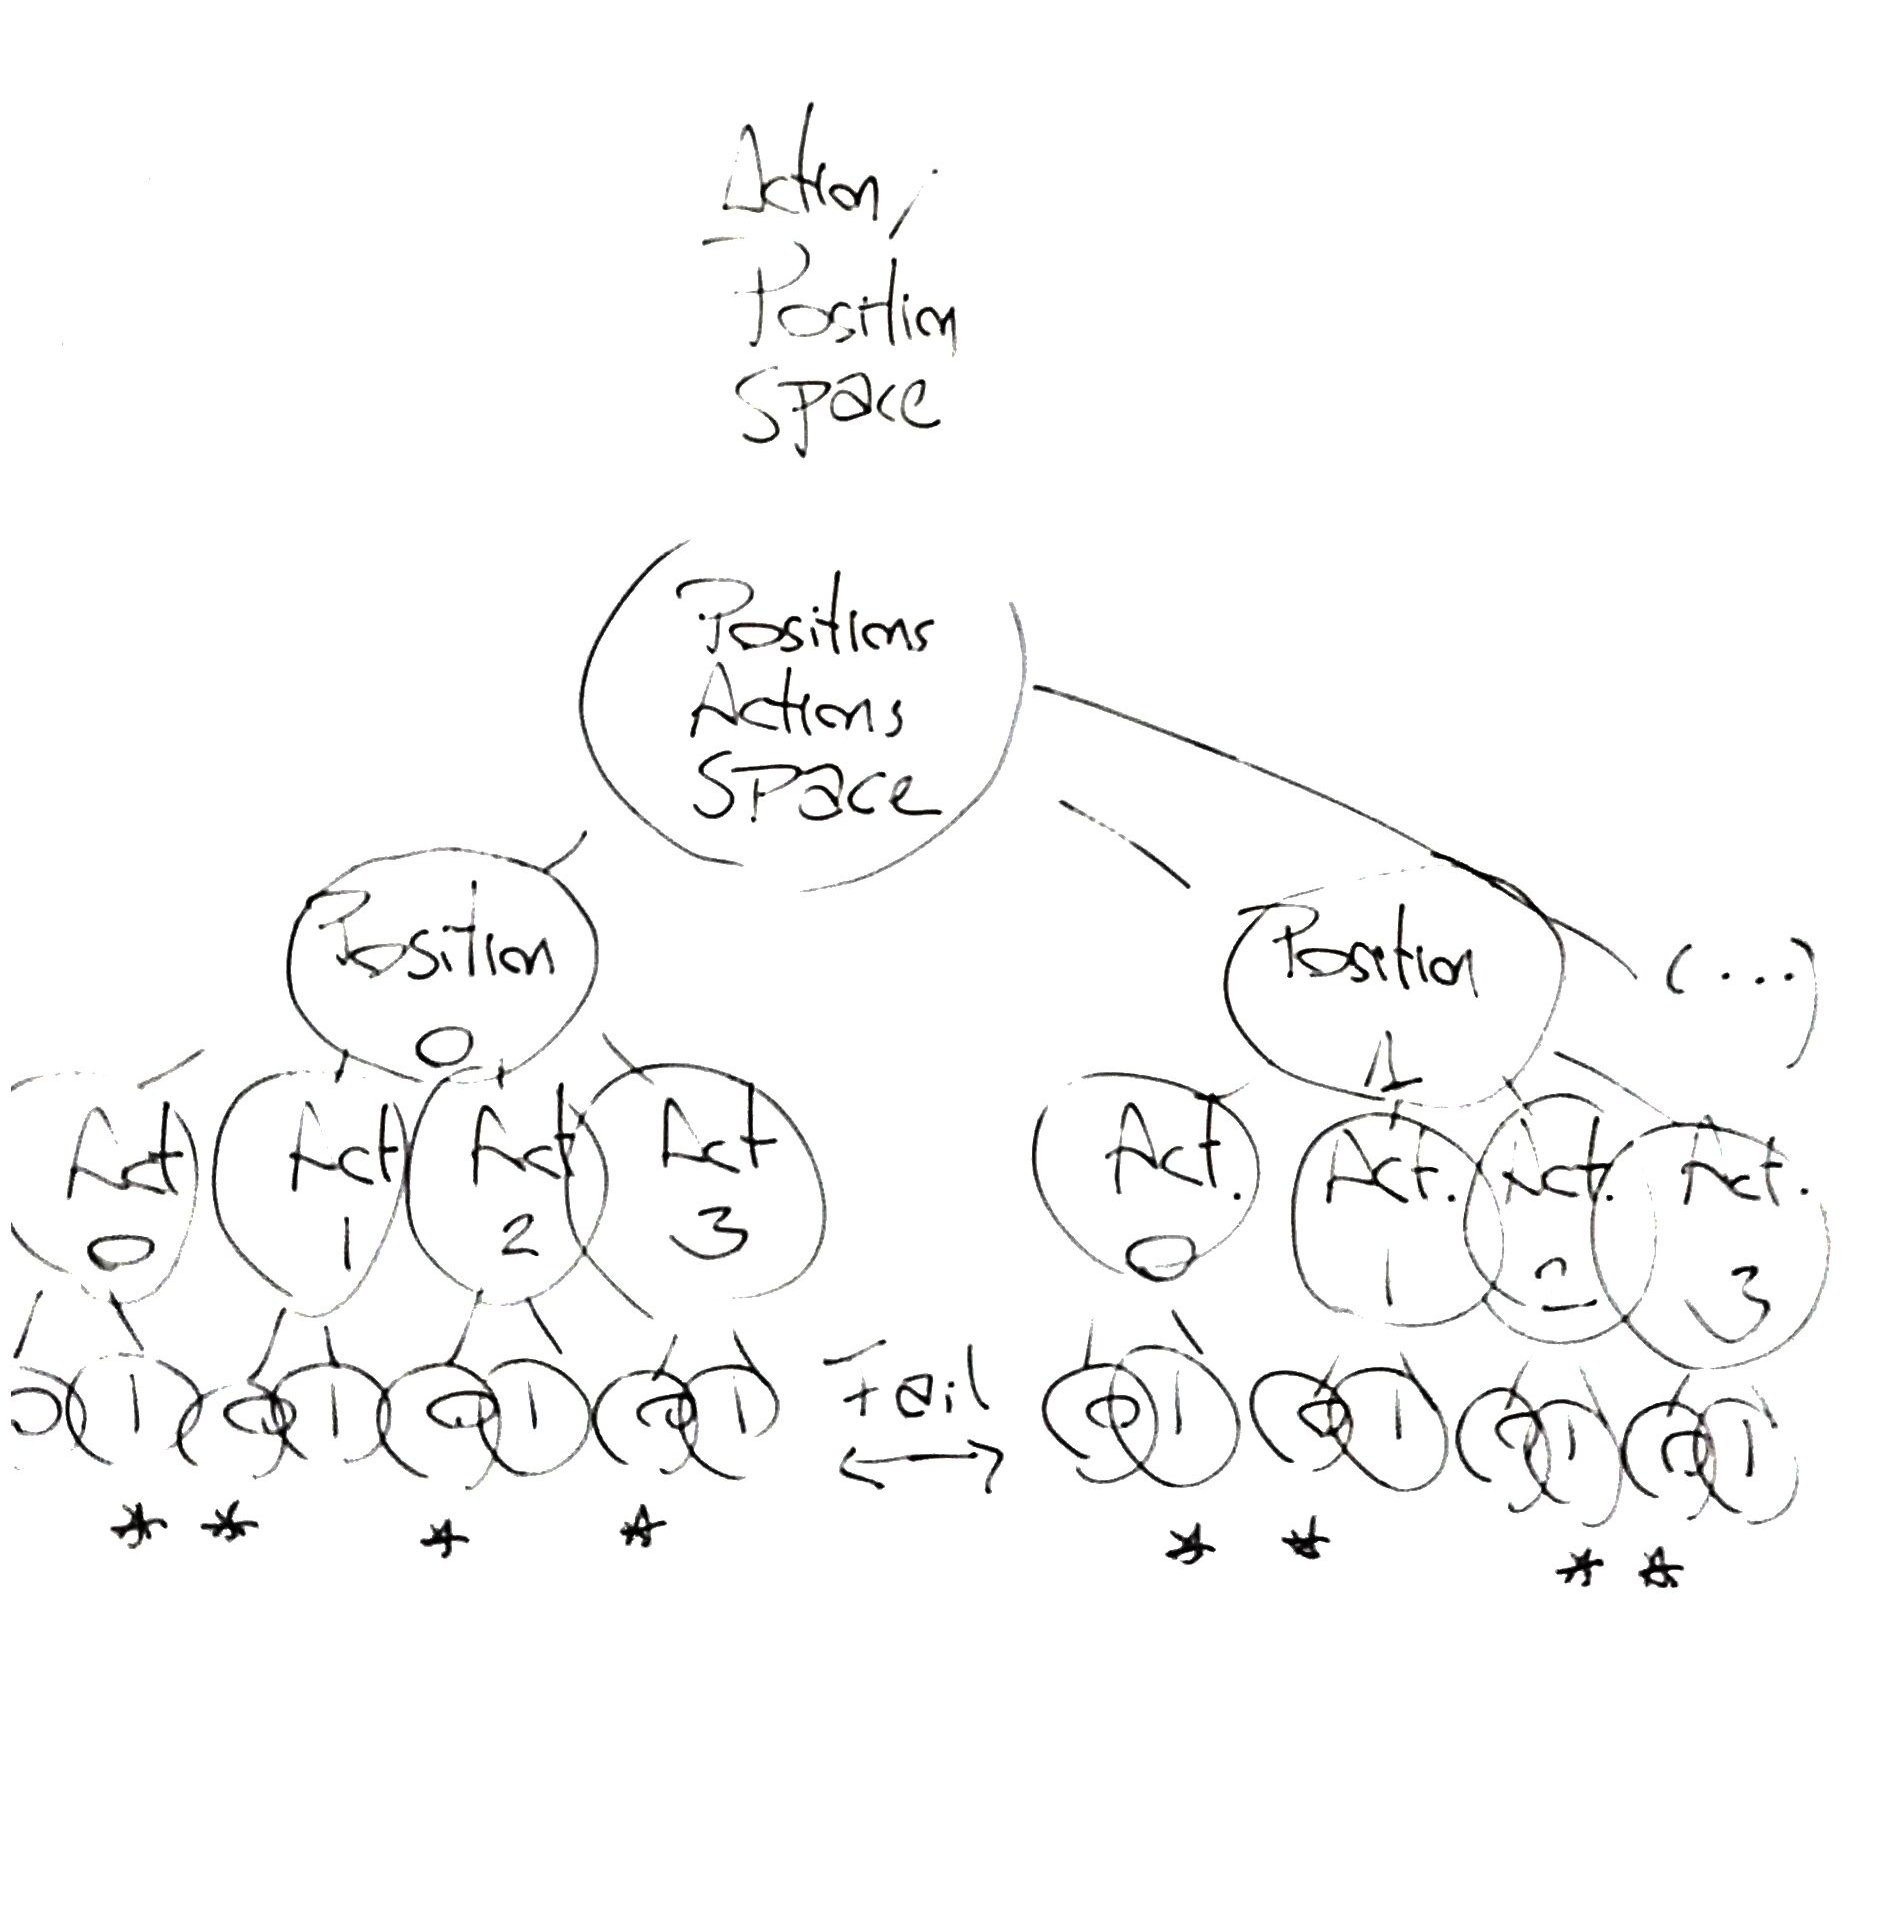 Action,
Position
Space
Positions
Actions
Space
Position
0
Position
1
(...)
Act
0
Act
1
Act
2
Act
3
Act.
0
Act.
1
Act.
2
Act.
3
0 1 0 1 0 1 0 1
Fail
0 1 0 1 0 1 0 1
* * * *
* * * *